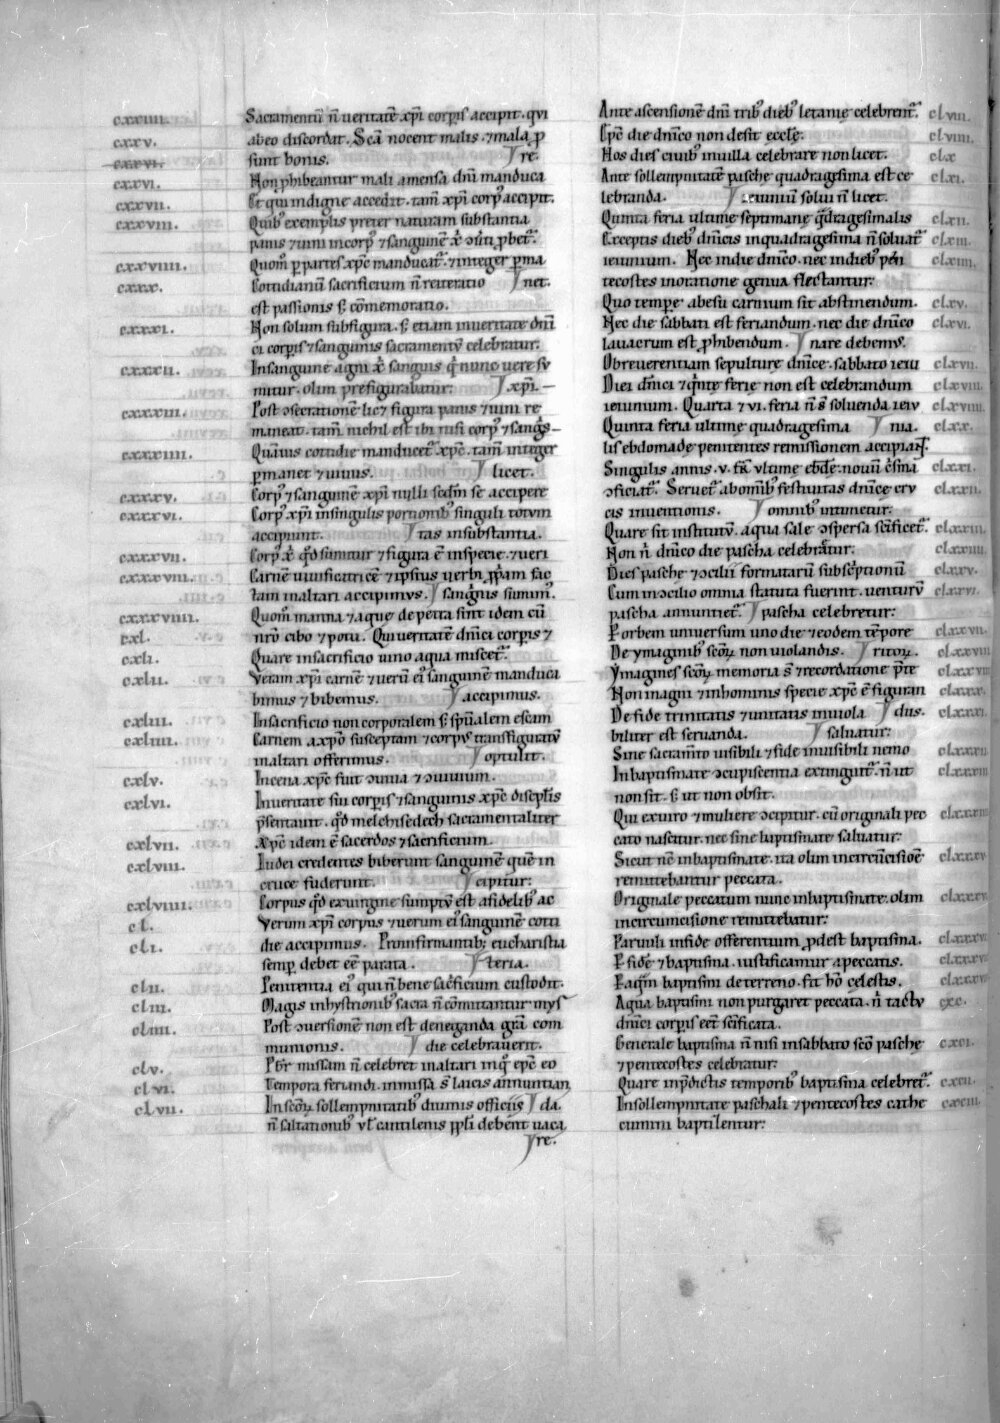 cxxiiii. Sacramentū n̄ veritatē xp̄i corporis accipit. qui
cxxv. ab eo discordat. Sc̄a nocent malis. ⁊ mala p̄
cxxvi. sunt bonis. re.
cxxvi. Non phibeantur mali a mensa dn̄i manduca
cxxvii. Et qui indigne accedit. tam̄ xp̄i corpꝰ accipit.
cxxviii. Quibꝰ exemplis preter naturam substantia
panis ⁊ uini in corpꝰ ⁊ sanguinē
cxxviiii. Quom̄ p partes xp̄c manducatᷣ. ⁊ integer pma
cxxx. Cottidianū sacrificium n̄ reiteratio net.
est passionis s; cōmemoratio.
cxxxi. Non solum sub figura. s; etiam in ueritate dn̄i
ci corporis ⁊ sanguinis sacramentū celebratur.
cxxxii. In sanguine agni sanguis qͥ nunc uere su
mitur. olim prefigurabatur. xp̄i.
cxxxiii. Post ↄsecrationē licet figura panis ⁊ uini re
maneat. tam̄ nichil est ibi nisi corpꝰ ⁊ sangͥs
cxxxiiii. Quāuis cottidie manducetᷣ xp̄c. tam̄ integer
pmanet ⁊ uiuus. licet.
cxxxv. Corpꝰ ⁊ sanguinē xp̄i nulli sedm̄ se accipere
cxxxvi. Corpꝰ xp̄i in singulis portionibꝰ singuli totum
accipiunt. tas in substantia.
cxxxvii. Corpꝰ qd̄ sumitur ⁊ figura ē in specie. ⁊ ueri
cxxxviii. Carnē uiuificatricē ⁊ ipsius uerbi ꝓpam fac
tam in altari accipimus. sangͥnis sumim̄.
cxxxviiii. Quom̄ manna ⁊ aque de petra sint idem cū
cxl. nr̄o cibo ⁊ potu. Qui ueritatē dn̄ici corporis ⁊
cxli. Quare in sacrificio uino aqua miscetᷣ.
cxlii. Veram xp̄i carnē ⁊ uerū eiꝰ sanguinē manduca
bimus ⁊ bibemus. accipimus.
cxliii. In sacrificio non corporalem s; sp̄ualem escam
cxliiii. Carnem a xp̄o susceptam ⁊ corpꝰ transfiguratū
in altari offerimus. optulit.
cxlv. In cena xp̄c fuit ↄuiua ⁊ ↄuiuium.
cxlvi. In ueritate sui corporis ⁊ sanguinis xp̄c disciplis
p̄sentauit. qd̄ melchisedech sacramentaliter
cxlvii. Xp̄c idem ē sacerdos ⁊ sacrificium.
cxlviii. Iudei credentes biberunt sanguinē quē in
cruce fuderunt. cipitur.
cxlviiii. Corpus qd̄ ex uirgine sumptū est a fidelibꝰ ac
cl. Verum xp̄i corpus ⁊ uerum eiꝰ sanguinē cotti
cli. die accipimus. Pro infirmantib; eucharistia
semp debet eē parata. steria.
clii. Penitentia eiꝰ qui n̄ bene sacrificium custodit.
cliii. Magis in hystrionibꝰ sacra n̄ cōmittantur mys
cliiii. Post ↄuersionē non est deneganda gr̄a com
munionis. die celebrauerit.
clv. Pbr̄ missam n̄ celebret in altari in qͦ ep̄c eo
clvi. Tempora feriandi in missa s̄ laicis annuntian
clvii. In sc̄oꝝ sollempnitatibꝰ diuinis officiis da.
n̄ saltationibꝰ ul̄ cantilenis ppl̄i debent uaca
re.
Ante ascensionē dn̄i tribꝰ diebꝰ letanie celebrentᷣ. clviii.
Ep̄c die dn̄ico non desit ecclę. clviiii.
Hos dies ciuibꝰ in uilla celebrare non licet. clx
Ante sollempnitatē pasche quadragesima est ce clxi.
lebranda. ieiuniū solui n̄ licet.
Quinta feria ultime septimane qͣdragesimalis clxii.
Exceptis diebꝰ dn̄icis in quadragesima n̄ soluatᷣ clxiii.
ieiunium. Nec in die dn̄ico. nec in diebꝰ pen clxiiii.
tecostes in oratione genua flectantur.
Quo tempe ab esu carnium sit abstinendum. clxv.
Nec die sabbati est feriandum. nec die dn̄ico clxvi.
lauacrum est phibendum. nare debemꝰ.
Ob reuerentiam sepulture dn̄ice. sabbato ieiu clxvii.
Diei dn̄ici ⁊ qͥnte ferie non est celebrandum clxviii.
ieiunium. Quarta ⁊ vi. feria n̄ s̄ soluenda ieiu clxviiii.
Quinta feria ultime quadragesima nia. clxx.
lis ebdomade penitentes remissionem accipiant.
Singulis annis. v. fr̄a ultime ebd̄e. nouū crisma clxxi.
ↄficiatᷣ. Seruetᷣ ab omibꝰ festiuitas dn̄ice cru clxxii.
cis inuentionis. omnibꝰ iniunctur.
Quare sit institutū. aqua sale ↄspersa sc̄ificetᷣ. clxxiii.
Non n̄ dn̄ico die pascha celebratur. clxxiiii.
Dies pasche ⁊ ↄcilii formatarū subscriptionū clxxv.
Cum in ↄcilio omnia statuta fuerint. uenturū clxxvi.
pascha annuntietᷣ. pascha celebretur.
P orbem universum uno die ⁊ eodem tēpore clxxvii.
De ymaginibꝰ sc̄oꝝ non uiolandis. ritoꝝ. clxxviii
Ymagines sc̄oꝝ memoria s̄ ⁊ recordatione p̄te
Non in agni ⁊ in hominis specie xp̄c ē figuran
De fide trinitatis ⁊ unitatis inuiola dus.
biliter est seruanda. saluatur.
Sine sacram̄to uisibili ⁊ fide inuisibili nemo
In baptismate ↄcupiscentia extinguitᷣ. n̄ ut
non sit. s; ut non obsit.
Qui ex uiro ⁊ muliere ↄcipitur. cū originali pec
cato nascitur. nec sine baptismate saluatur.
Sicut nc̄ in baptismate. ita olim in circūcisioē
remittebantur peccata.
Originale peccatum nunc in baptismate. olim
in circumcisione remittebatur.
Paruuli in fide offerentium pdest baptisma.
P fidē ⁊ baptisma iustificamur a peccatis.
P aqͣm baptismi de terreno. fit hō celestis.
Aqua baptismi non purgaret peccata. n̄ tactu cxc.
dn̄ici corporis eēt sc̄ificata.
Generale baptisma n̄ nisi in sabbato sc̄o pasche cxci.
⁊ pentecostes celebratur.
Quare in p̄dictis temporibꝰ baptisma celebretᷣ. cxcii.
In sollempnitate paschali ⁊ pentecostes cathe cxciii.
cumini baptizentur.